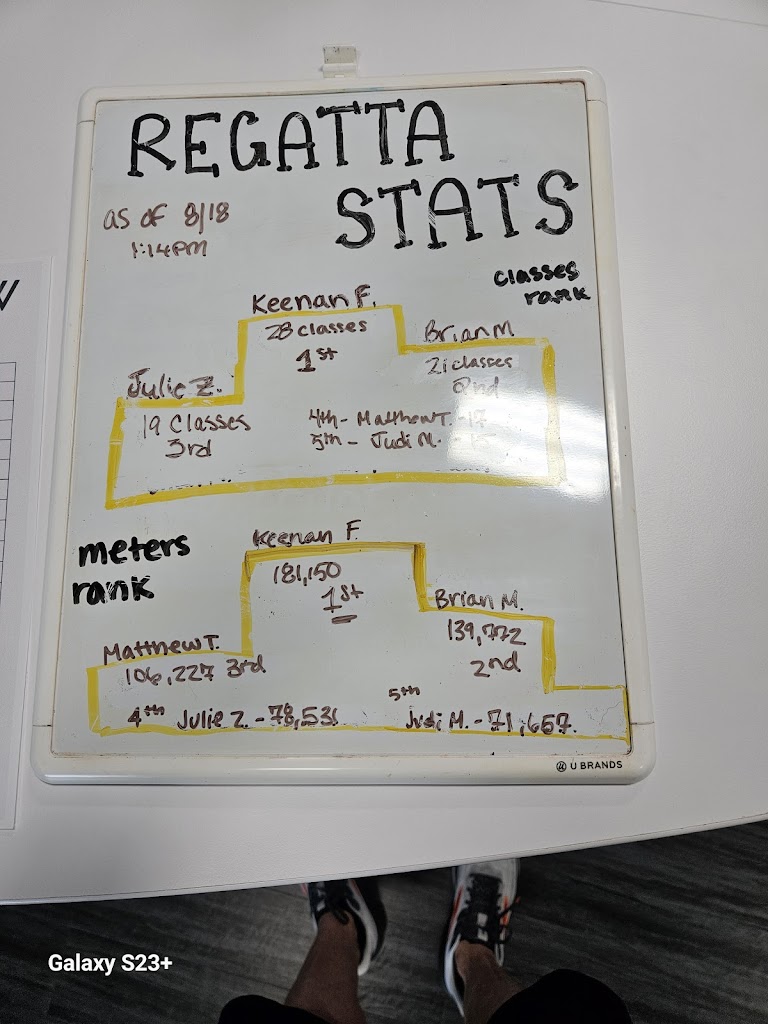 REGATTA
STATS
as of 8/18
1:14PM
classes
rank
Keenan F.
28 classes
1st
Brian M
21 classes
2nd
Julie Z.
19 Classes
3rd
4th - Matthew T. - 17
5th - Judi M. - 15
meters
rank
Keenan F.
181,150
1st
Brian M.
139,772
2nd
Matthew T.
106,227 3rd
4th Julie Z. - 78,531
5th
Judi M. - 71,657.
U BRANDS
Galaxy S23+